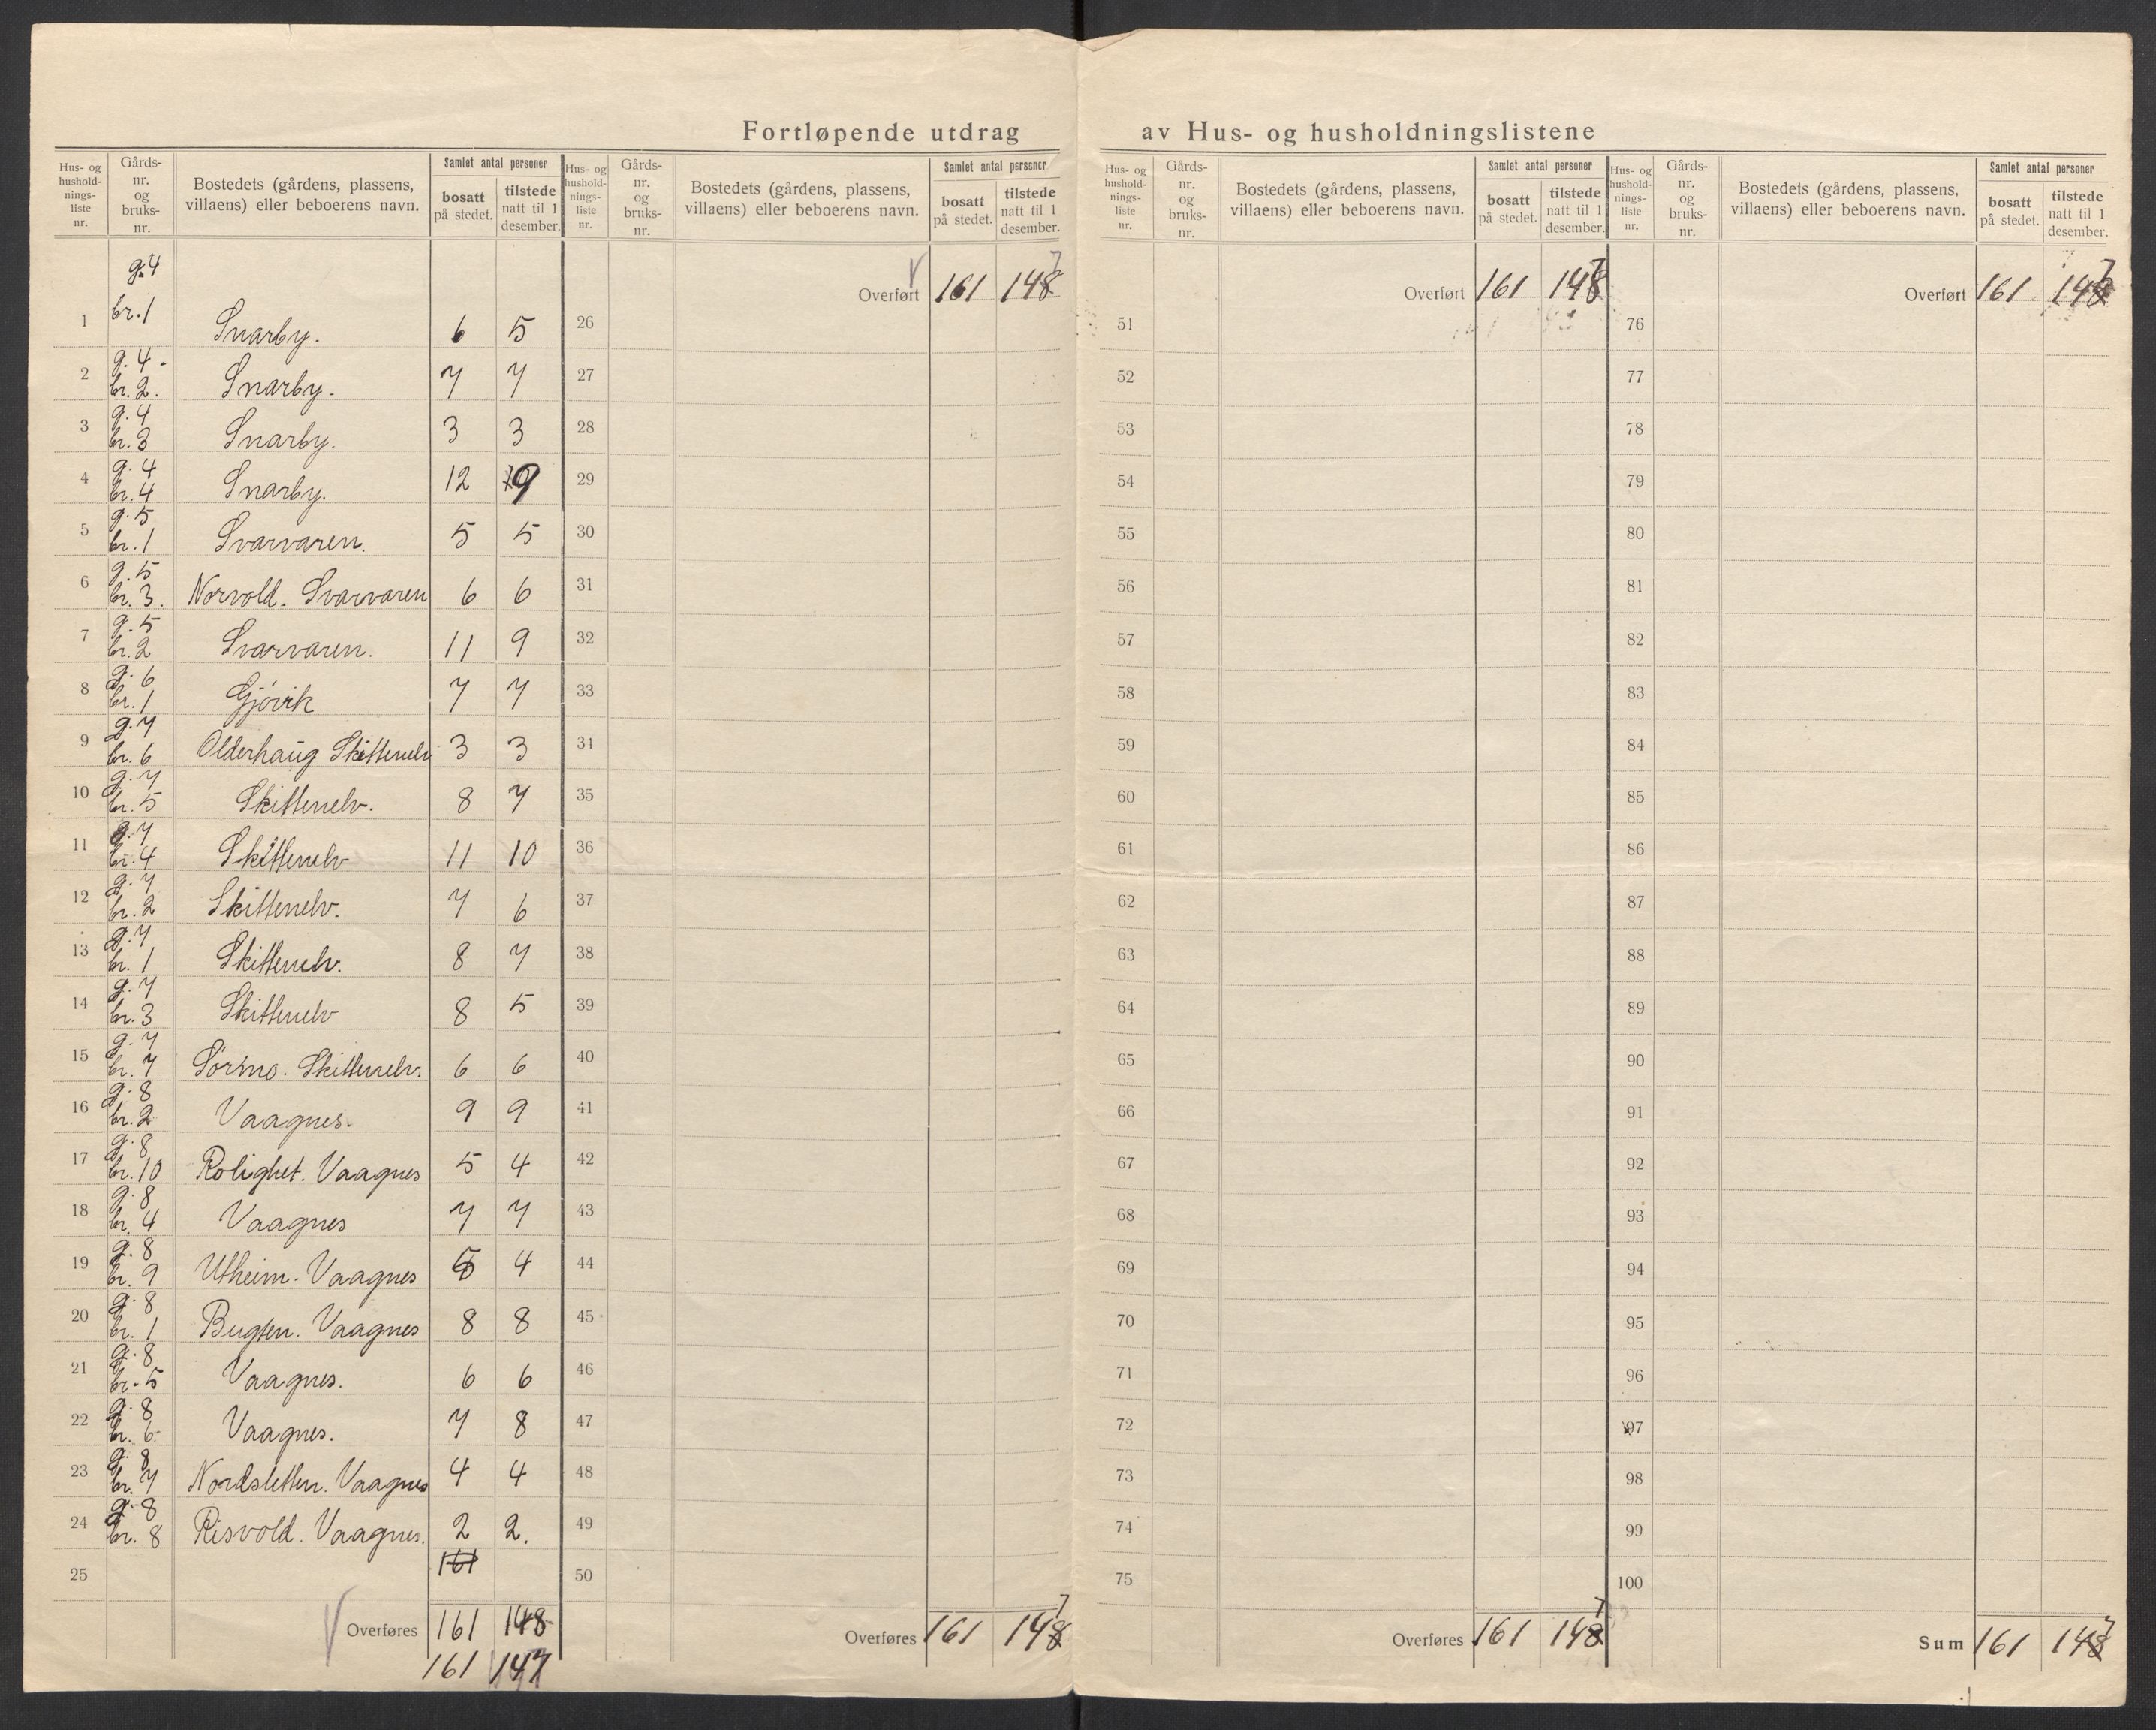 Fortløpende utdrag av Hus- og husholdningslistene
Hus- og hushold- nings- liste nr. | Gårds- nr. og bruks- nr. | Bostedets (gårdens, plassens, villaens) eller beboerens navn. | Samlet antal personer: bosatt på stedet. | tilstede natt til 1 desember.
1 g.4 br.1 Snarby. 6 5
2 g.4 br.2. Snarby. 7 7
3 g.4 br.3 Snarby. 3 3
4 g.4 br.4 Snarby. 12 9
5 g.5 br.1 Svarvaren. 5 5
6 g.5 br.3. Norvold. Svarvaren 6 6
7 g.5 br.2 Svarvaren. 11 9
8 g.6 br.1 Gjövik 7 7
9 g.7 br.6 Olderhaug Skittenelv 3 3
10 g.7 br.5 Skittenelv. 8 7
11 g.7 br.4 Skittenelv 11 10
12 g.7 br.2 Skittenelv. 7 6
13 g.7 br.1 Skittenelv. 8 7
14 g.7 br.3 Skittenelv 8 5
15 g.7 br.7 Sörmo. Skittenelv. 6 6
16 g.8 br.2 Vaagnes. 9 9
17 g.8 br.10 Rolighet. Vaagnes 5 4
18 g.8 br.4 Vaagnes 7 7
19 g.8 br.9 Utheim. Vaagnes 5 4
20 g.8 br.1 Bugten. Vaagnes 8 8
21 g.8 br.5 Vaagnes. 6 6
22 g.8 br.6 Vaagnes. 7 8
23 g.8 br.7 Nordsletten. Vaagnes 4 4
24 g.8 br.8 Risvold. Vaagnes. 2 2.
25 161
Overføres 161 148
161 147
Hus- og hushold- nings- liste nr. | Gårds- nr. og bruks- nr. | Bostedets (gårdens, plassens, villaens) eller beboerens navn. | Samlet antal personer: bosatt på stedet. | tilstede natt til 1 desember.
Overført 161 1487
26
27
28
29
30
31
32
33
31
35
36
37
38
39
40
41
42
43
44
45
46
47
48
49
50
Overføres 161 1487
Hus- og hushold- nings- liste nr. | Gårds- nr. og bruks- nr. | Bostedets (gårdens, plassens, villaens) eller beboerens navn. | Samlet antal personer: bosatt på stedet. | tilstede natt til 1 desember.
Overført 161 1487
51
52
53
54
55
56
57
58
59
60
61
62
63
64
65
66
67
68
69
70
71
72
73
74
75
Overføres 161 1487
Hus- og hushold- nings- liste nr. | Gårds- nr. og bruks- nr. | Bostedets (gårdens, plassens, villaens) eller beboerens navn. | Samlet antal personer: bosatt på stedet. | tilstede natt til 1 desember.
Overført 161 1487
76
77
78
79
80
81
82
83
84
85
86
87
88
89
90
91
92
93
94
95
96
97
98
99
100
Sum 161 1487